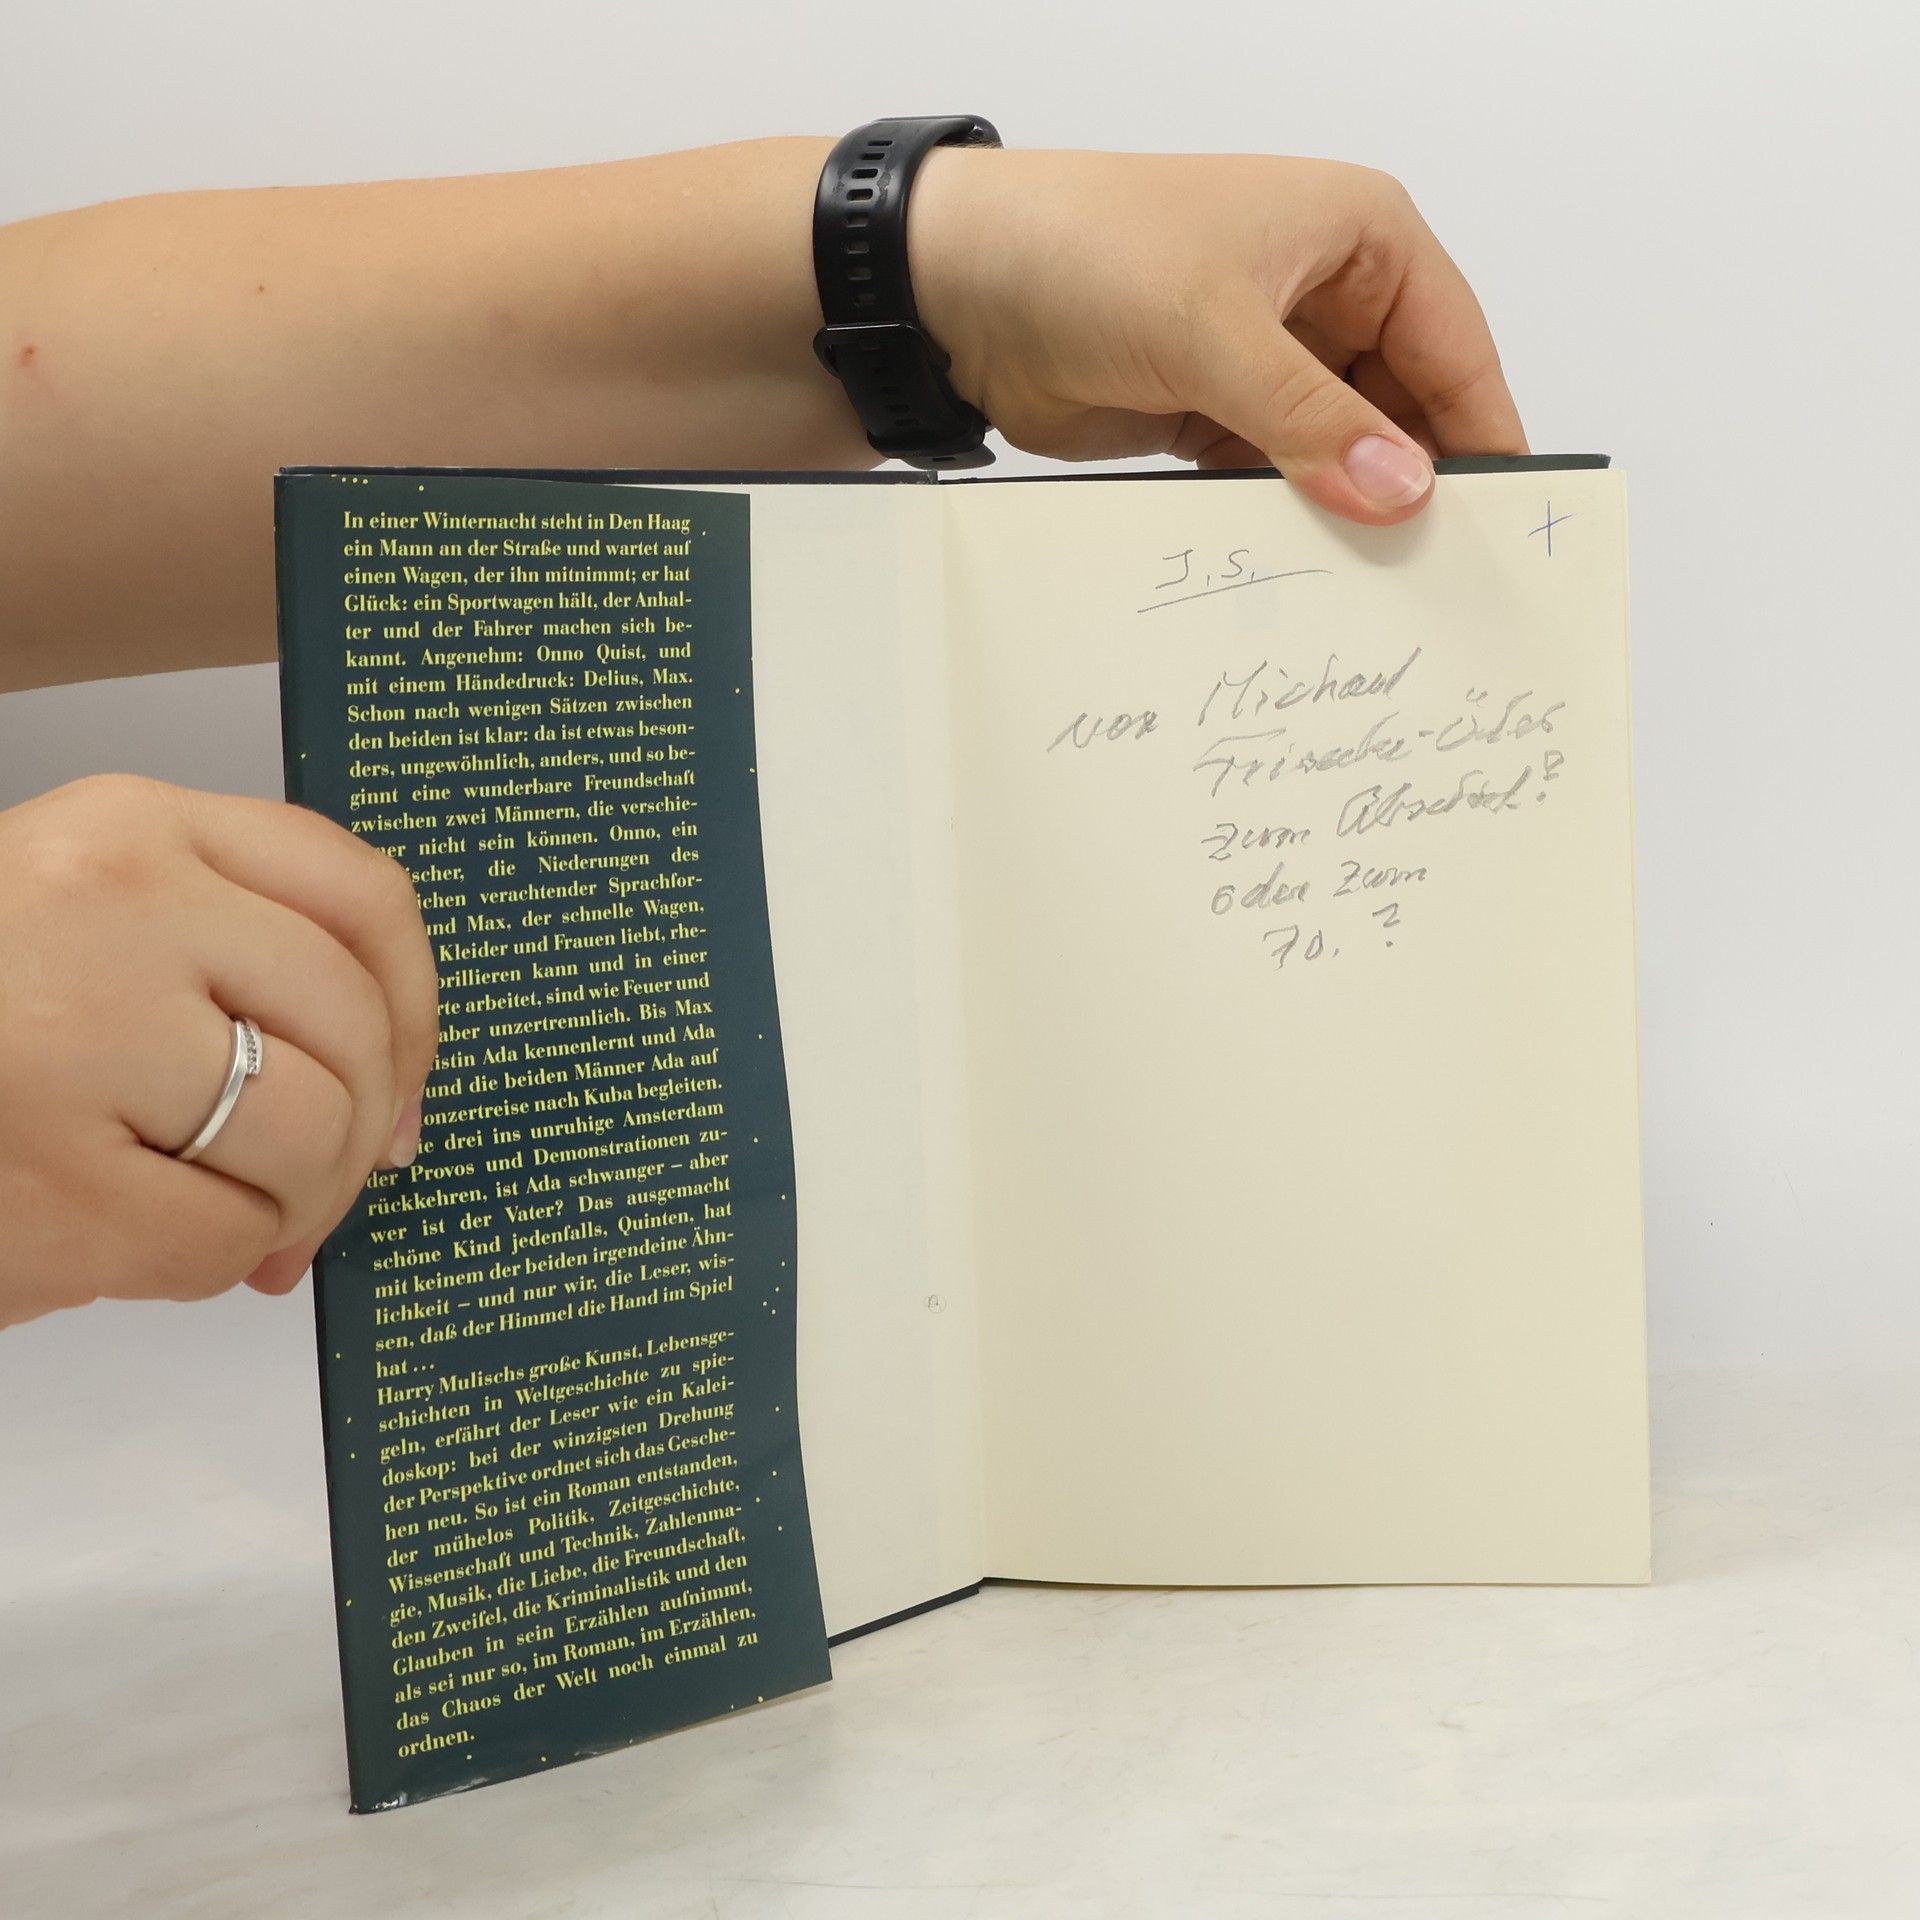 In einer Winternacht steht in Den Haag
ein Mann an der Straße und wartet auf
einen Wagen, der ihn mitnimmt; er hat
Glück: ein Sportwagen hält, der Anhal-
ter und der Fahrer machen sich be-
kannt. Angenehm: Onno Quist, und
mit einem Händedruck: Delius, Max.
Schon nach wenigen Sätzen zwischen
den beiden ist klar: da ist etwas beson-
ders, ungewöhnlich, anders, und so be-
ginnt eine wunderbare Freundschaft
zwischen zwei Männern, die verschie-
ner nicht sein können. Onno, ein
ischer, die Niederungen des
ichen verachtender Sprachfor-
und Max, der schnelle Wagen,
Kleider und Frauen liebt, rhe-
brillieren kann und in einer
rte arbeitet, sind wie Feuer und
aber unzertrennlich. Bis Max
istin Ada kennenlernt und Ada
und die beiden Männer Ada auf
onzertreise nach Kuba begleiten.
ie drei ins unruhige Amsterdam
der Provos und Demonstrationen zu-
rückkehren, ist Ada schwanger – aber
wer ist der Vater? Das ausgemacht
schöne Kind jedenfalls, Quinten, hat
mit keinem der beiden irgendeine Ähn-
lichkeit – und nur wir, die Leser, wis-
sen, daß der Himmel die Hand im Spiel
hat ...
Harry Mulischs große Kunst, Lebensge-
schichten in Weltgeschichte zu spie-
geln, erfährt der Leser wie ein Kalei-
doskop: bei der winzigsten Drehung
der Perspektive ordnet sich das Gesche-
hen neu. So ist ein Roman entstanden,
der mühelos Politik, Zeitgeschichte,
Wissenschaft und Technik, Zahlenma-
gie, Musik, die Liebe, die Freundschaft,
den Zweifel, die Kriminalistik und den
Glauben in sein Erzählen aufnimmt,
als sei nur so, im Roman, im Erzählen,
das Chaos der Welt noch einmal zu
ordnen.
J.S.
von Michael
zum Abschied?
oder zum
70. ?